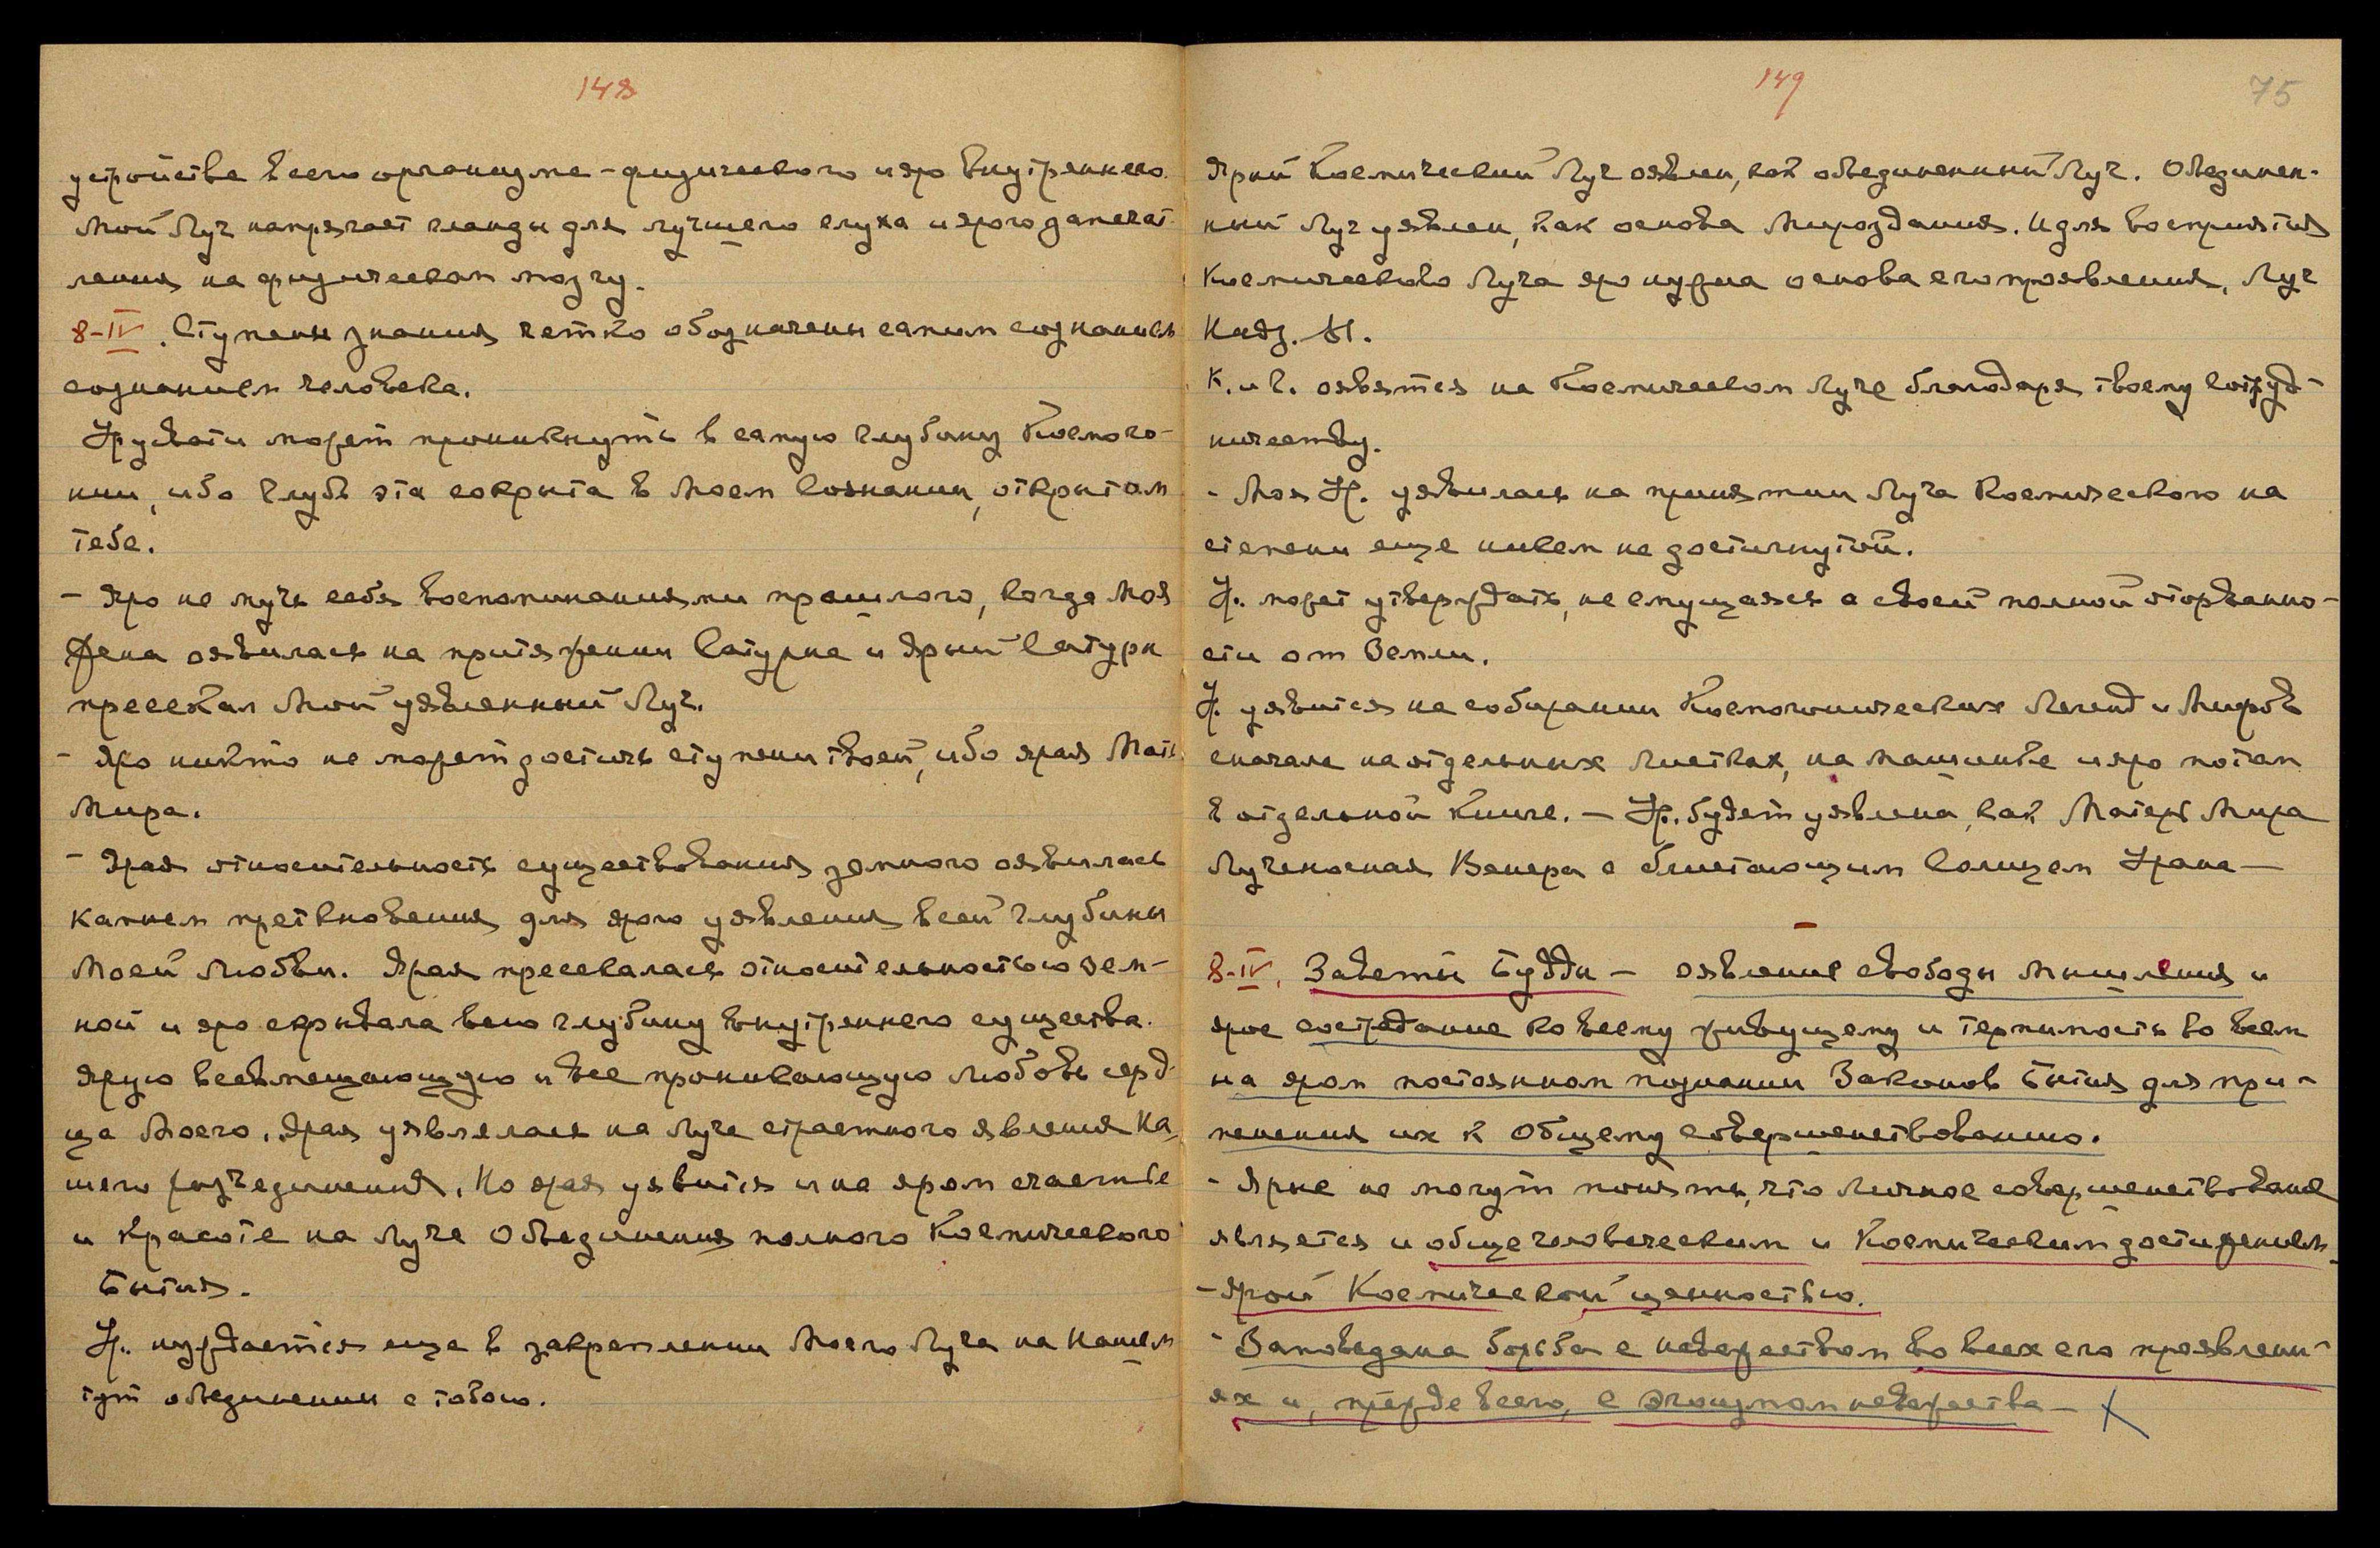 148
устройстве всего организма - физического и яро внутреннего.
Мой Луч напрягает гланды для лучшего слуха и ярого запечат-
ления на физическом мозгу.
8-IV. Ступени знания четко обозначены самим сознанием
сознанием человека.
Урусвати может проникнуть в самую глубину Космого-
нии, ибо глубь эта сокрыта в Моем Сознании, открытом
тебе.
- Яро не мучь себя воспоминаниями прошлого, когда Моя
Жена оявилась на притяжении Сатурна и Ярый Сатурн
пресекал Мой уявленный Луч.
- Яро никто не может достичь ступени твоей, ибо ярая Мать
Мира.
- Ярая относительность существования земного оявилась
камнем преткновения для ярого уявления всей глубины
Моей Любви. Ярая пресекалась относительностью зем-
ной и яро скрывала всю глубину внутреннего существа.
Ярую всевмещающую и все проникающую любовь серд-
ца Моего. Ярая уявлялась на Луче страстного явления На-
шего разъединения. Но ярая уявится и на яром счастье
и красоте на Луче Объединения полного Космического
Бытия.
У. нуждается еще в закреплении Моего Луча на Нашем
тут объединении с тобою.
149
75
Ярый Космический Луч оявлен, как объединенный Луч. Объединен-
ный Луч уявлен, как основа Мироздания. И для восприятия
Космического Луча яро нужна основа его проявления, Луч
К. и С. оявятся на Космическом Луче благодаря твоему сотруд-
ничеству.
- Моя Ур. уявилась на принятии Луча Космического на
степени еще никем не достигнутой.
У. может утверждать, не смущаясь о своей полной оторванно-
сти от Земли.
У. уявится на собирании Космогонических Легенд и Мифов
сначала на отдельных листках, на машинке и яро потом
в отдельной книге. - Ур. будет уявлена, как Матерь Мира
Лученосная Венера с блистающим Солнцем Урана -
-
8-IV. Заветы Будды - оявление свободы мышления и
ярое сострадание ко всему живущему и терпимость во всем
на яром постоянном познании Законов Бытия для при-
менения их к Общему совершенствованию.
- Ярые не могут понять, что личное совершенствование
является и общечеловеческим и Космическим достижением
- Ярой Космической ценностью.
- Заповедана борьба с невежеством во всех его проявлени-
ях и, прежде всего, с эгоизмом невежества -